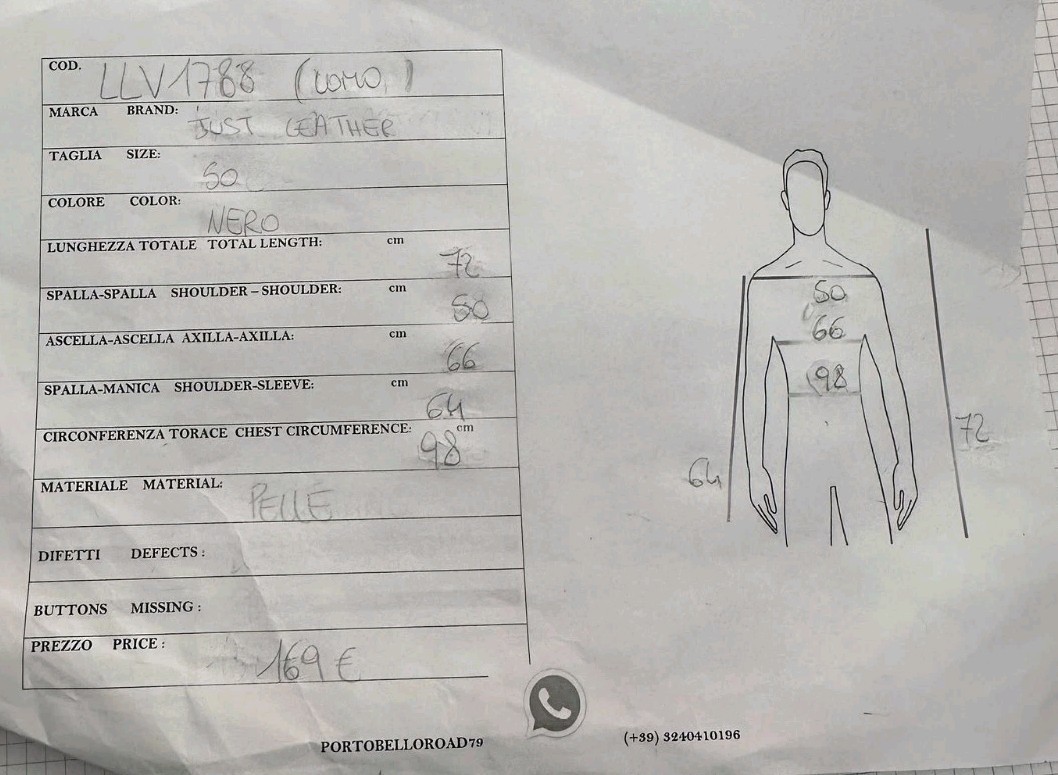 COD. LLV1788 (UOMO)
MARCA BRAND: JUST LEATHER
TAGLIA SIZE: 50
COLORE COLOR: NERO
LUNGHEZZA TOTALE TOTAL LENGTH: cm 72
SPALLA-SPALLA SHOULDER – SHOULDER: cm 50
ASCELLA-ASCELLA AXILLA-AXILLA: cm 66
SPALLA-MANICA SHOULDER-SLEEVE: cm 64
CIRCONFERENZA TORACE CHEST CIRCUMFERENCE: cm 98
MATERIALE MATERIAL: PELLE
DIFETTI DEFECTS :
BUTTONS MISSING :
PREZZO PRICE : 169 €
50
66
98
64
72
PORTOBELLOROAD79 (+39) 3240410196